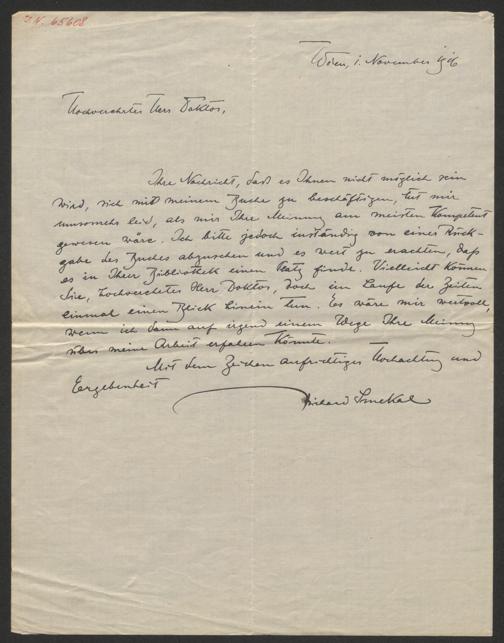 I.N. 65608
Wien, 1. November 1916
Hochverehrter Herr Doktor,
Ihre Nachricht, daß es Ihnen nicht möglich sein
wird, sich mit meinem Buche zu beschäftigen, tut mir
umsomehr leid, als mir Ihre Meinung am meisten kompetent
gewesen wäre. Ich bitte jedoch inständig von einer Rück-
gabe des Buches abzusehen und es wert zu erachten, daß
es in Ihrer Bibliothek einen Platz finde. Vielleicht können
Sie, hochverehrter Herr Doktor, doch im Laufe der Zeiten
einmal einen Blick hinein tun. Es wäre mir wertvoll,
wenn ich dann auf irgend einem Wege Ihre Meinung
über meine Arbeit erfahren könnte.
Mit dem Zeichen aufrichtiger Hochachtung und
Ergebenheit
Richard Smekal